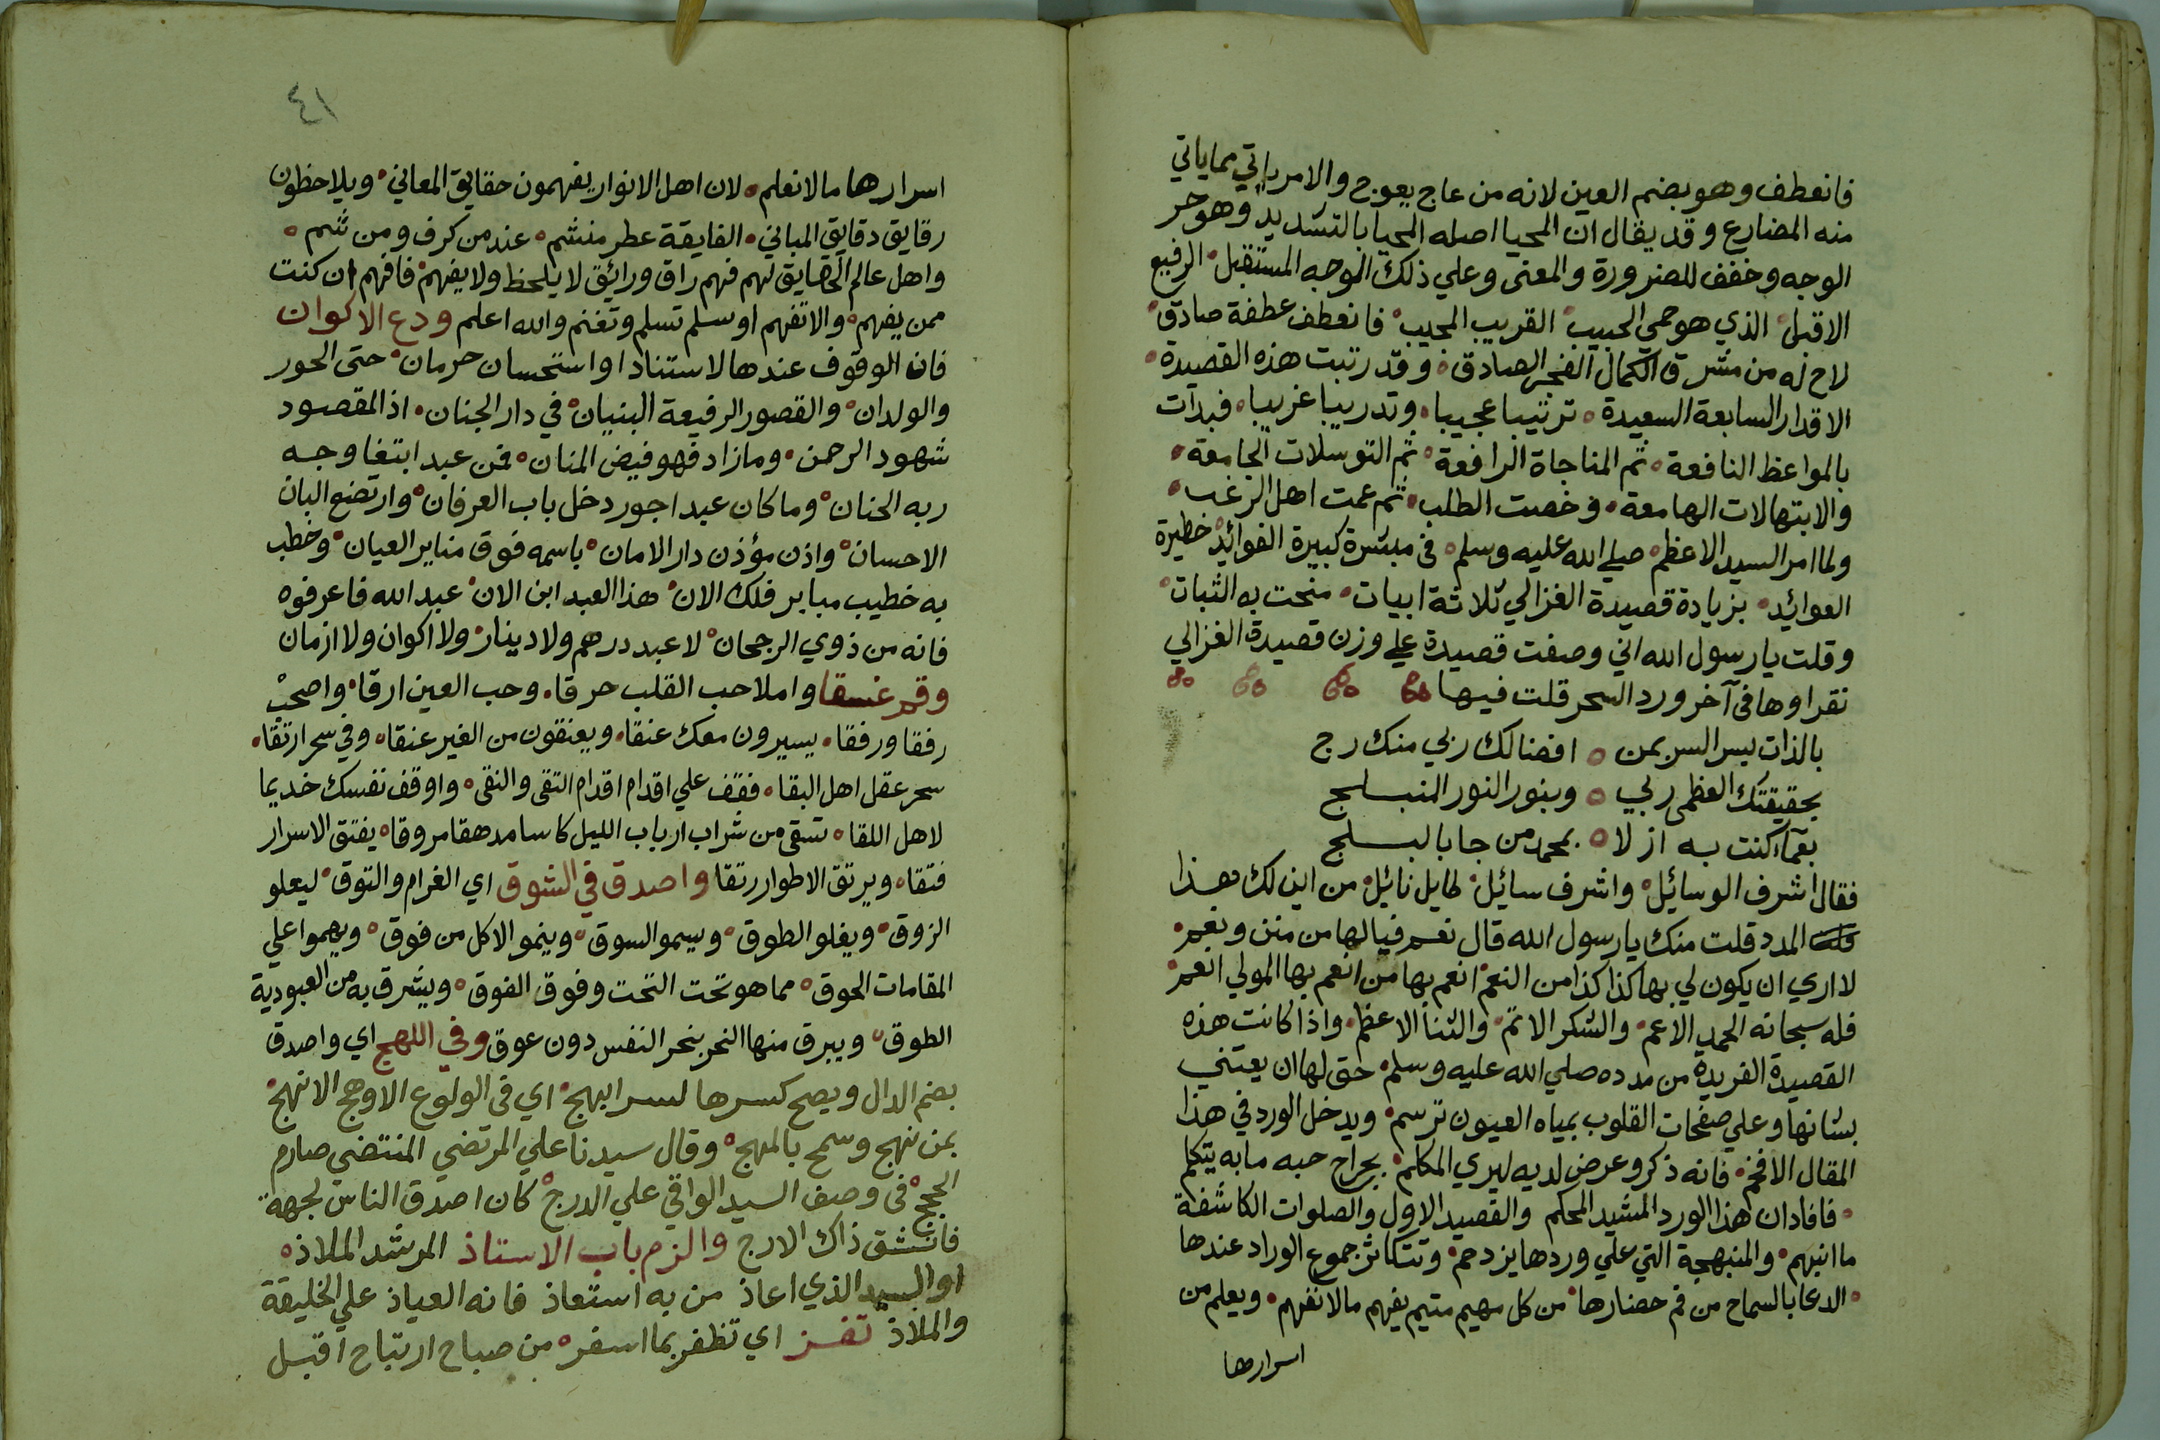 فانعطف وهو بضم العين لانه من عاج يعوج والامر ياتي مما ياتي
منه المضارع وقد يقال ان المحيا اصله المحيا بالتشديد وهو حر
الوجه وخفف للضرورة والمعنى وعلي ذلك الوجه المستقبل الرفيع
الاقبل الذي هو حمى الحبيب القريب المجيب فانعطف عطفة صادق
لاح له من مشرق الكمال الفجر الصادق وقد رتبت هذه القصيدة
الاقدار السابعة السعيدة ترتيبا عجيبا وتدريبا غريبا فبدات
بالمواعظ النافعة ثم المناجاة الرافعة ثم التوسلات الجامعة
والابتهالات الهامعة وخصت الطلب ثم عمت اهل الرغب
ولما امر السيد الاعظم صلي الله عليه وسلم في مبشرة كبيرة الفوائد خطيرة
العوائد بزيادة قصيدة الغزالي ثلاثة ابيات منحت به الثبات
وقلت يا رسول الله اني وصفت قصيدة علي وزن قصيدة الغزالي
نقراوها في آخر ورد السحر قلت فيها
بالذات بسر السر بمن افضالك ربي منك رج
بحقيقتك العظمى ربي وبنور النور المنبلج
بعماء كنت به ازلا بمحمد من جا بالبلج
فقال اشرف الوسائل واشرف سائل لطايل نائل من اين لك هذا
المدد قلت منك يا رسول الله قال نعم فيالها من منن ونعم
لا اري ان يكون لي بها كذا كذا من النعم انعم بها من انعم بها المولي انعم
فله سبحانه الحمد الاعم والشكر الاتم والثنا الاعظم واذا كانت هذه
القصيدة الفريدة من مدده صلي الله عليه وسلم حق لها ان يعتني
بشانها وعلي صفحات القلوب بمياه العيون ترسم ويدخل الورد في هذا
المقال الافخم فانه ذكر وعرض لديه ليري المكلم بجراح حبه ما به يتكلم
فافاد ان هذا الورد المشيد المحكم والقصيد الاول والصلوات الكاشفة
ما انبهم والمنبهجة التي علي وردها يزدحم وتتكاثر جموع الوراد عندها
الدعا بالسماح من فم حضارها من كل مهيم متيم يفهم مالا نفهم ويعلم من
اسرارها
٤١
اسرارها مالا نعلم لان اهل الانوار يفهمون حقايق المعاني ويلاحظون
رقايق دقايق المباني الفايقة عطر منشم عند من كرف ومن شم
واهل عالم الحقايق لهم فهم راق ورائق لا يلحظ ولا يفهم فافهم ان كنت
ممن يفهم والا تفهم او سلم تسلم وتغنم والله اعلم ودع الاكوان
فان الوقوف عندها لاستناد او استحسان حرمان حتى الحور
والولدان والقصور الرفيعة البنيان في دار الجنان اذ المقصود
شهود الرحمن وما زاد فهو فيض المنان فمن عبد ابتغا وجه
ربه الحنان وما كان عبد اجور دخل باب العرفان وارتضع البان
الاحسان واذن مؤذن دار الامان باسمه فوق منابر العيان وخطب
به خطيب مبابر فلك الان هذا العبد ابن الان عبد الله فاعرفوه
فانه من ذوي الرجحان لا عبد درهم ولا دينار ولا اكوان ولا ازمان
وقم غسقا واملا حب القلب حرقا وحب العين ارقا واصحب
رفقا ورفقا يسيرون معك عنقا ويعتقون من الغير عنقا وفي سحر ارتقا
سحر عقل اهل البقا فقف علي اقدام اقدام التقى والنقى واوقف نفسك خديما
لاهل اللقا تسقى من شراب ارباب الليل كاسا مدهقا مروقا يفتق الاسرار
فتقا ويرتق الاطوار رتقا واصدق في الشوق اي الغرام والتوق ليعلو
الزوق ويغلو الطوق ويسمو السوق وينمو الاكل من فوق ويهموا علي
المقامات الحوق مما هو تحت التحت وفوق الفوق ويشرق به من العبودية
الطوق ويبرق منها النحر بنحر النفس دون عوق وفي اللهج اي واصدق
بضم الدال ويصح كسرها لسر ابهج اي في الولوع الاوهج الانهج
بمن نهج وسمح بالمهج وقال سيدنا علي المرتضي المنتضي صارم
الحجج في وصف السيد الواقي علي الدرج كان اصدق الناس لجهة
فانتشق ذاك الارج والزم باب الاستاذ المرشد الملاذ
او السيد الذي اعاذ من به استعاذ فانه العياذ علي الخليقة
والملاذ تفز اي تظفر بما اسفر من صباح ارتياح اقبل